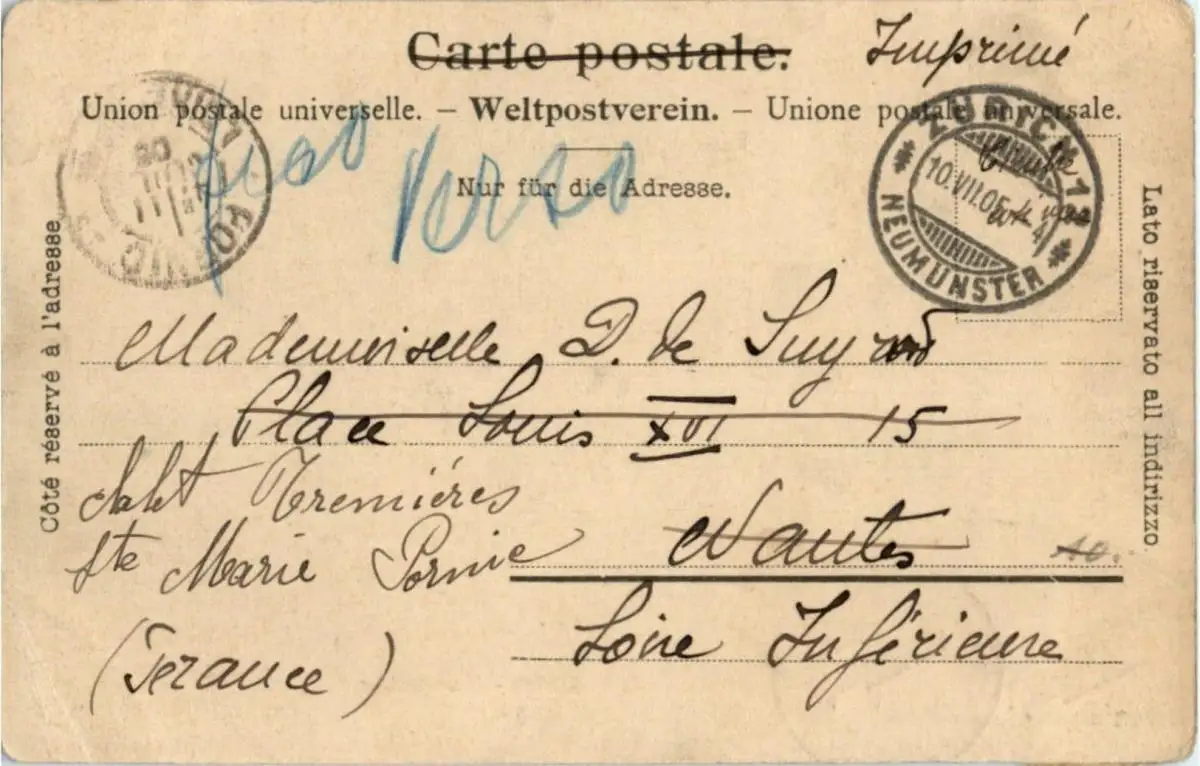 Carte postale.
Imprimé
Union postale universelle. – Weltpostverein. – Unione postale universale.
Nur für die Adresse.
Verso
ZÜRICH 13
10.VII.05
4
NEUMÜNSTER
PORNIC
Côté réservé à l'adresse
Lato riservato all indirizzo.
Mademoiselle D. de
Place Louis XVI 15
Tremières
Ste Marie Pornic
Nantes
10.
(France)
Loire Inférieure